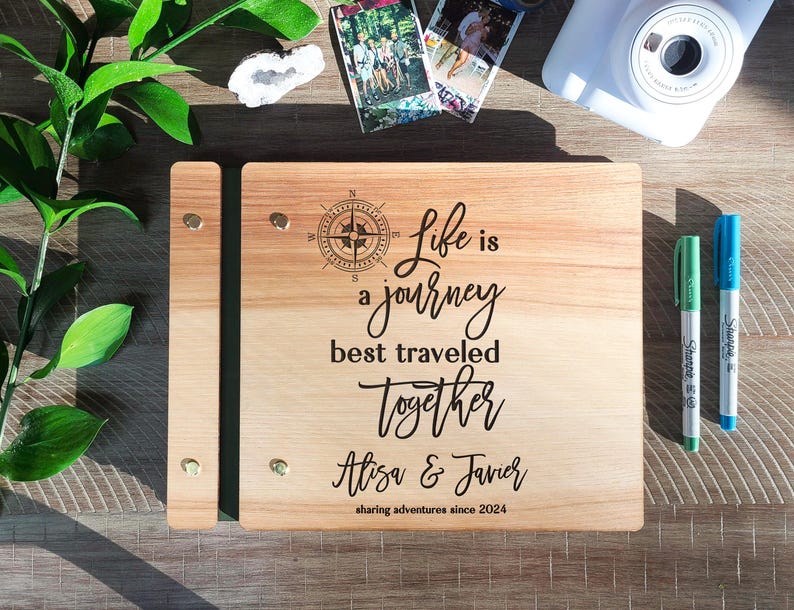 N
W
E
S
Life is
a journey
best traveled
together
Alisa & Javier
sharing adventures since 2024
Sharpie
Sharpie